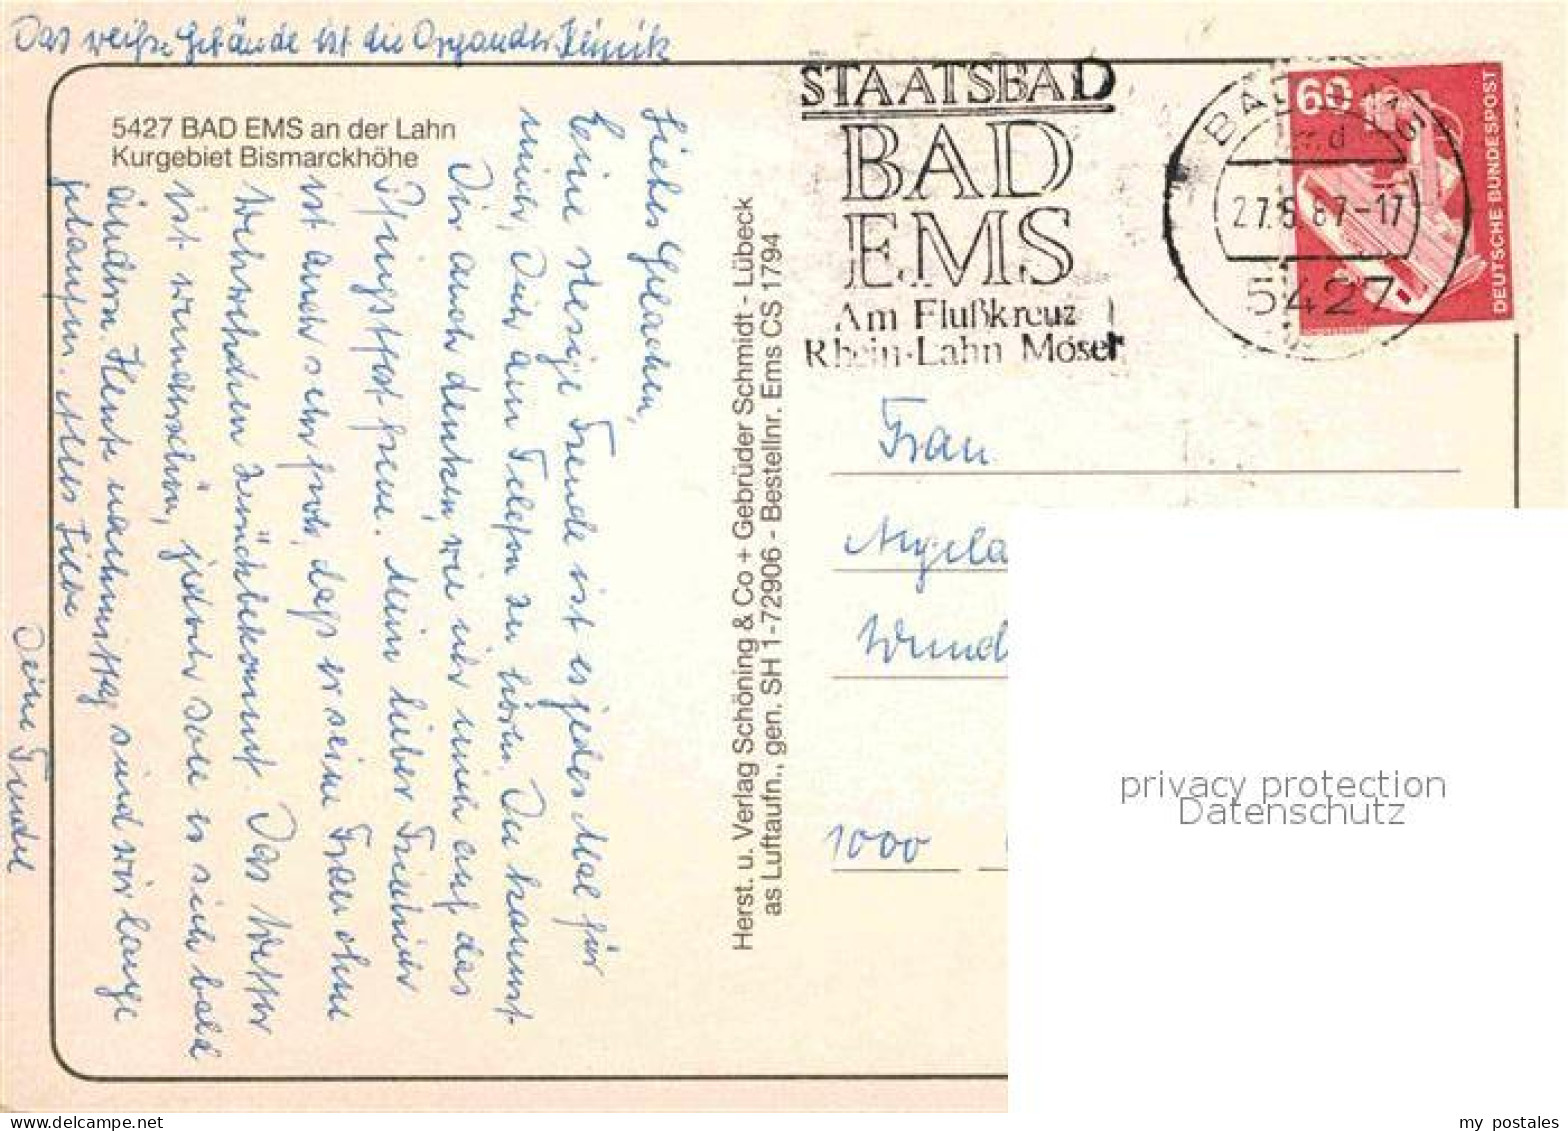 Das weiße Gebäude ist die Organder Klinik
5427 BAD EMS an der Lahn
Kurgebiet Bismarckhöhe
Liebes Gelachen,
Eine riesige Freude ist es jedes Mal für
mich, Dich am Telefon zu hören. Du kannst
Dir auch denken, wie ich mich auf das
Pfingstfest freue. Mein lieber
ist auch sehr froh, dass er seine Frau ohne
Wehwehchen zurückbekommt. Das Wetter
ist wunderschön, jedoch soll es sich bald
ändern. Heute nachmittag sind wir lange
gelaufen. Alles Liebe
Deine Trudel
Herst. u. Verlag Schöning & Co + Gebrüder Schmidt - Lübeck
as Luftaufn., gen. SH 1-72906 - Bestellnr. Ems CS 1794
STAATSBAD
BAD
EMS
Am Flußkreuz
Rhein-Lahn Mosel
BAD EMS
md
27.5.87-17
5427
60
DEUTSCHE BUNDESPOST
Frau
Angela
Wund
1000
privacy protection
Datenschutz
my postales